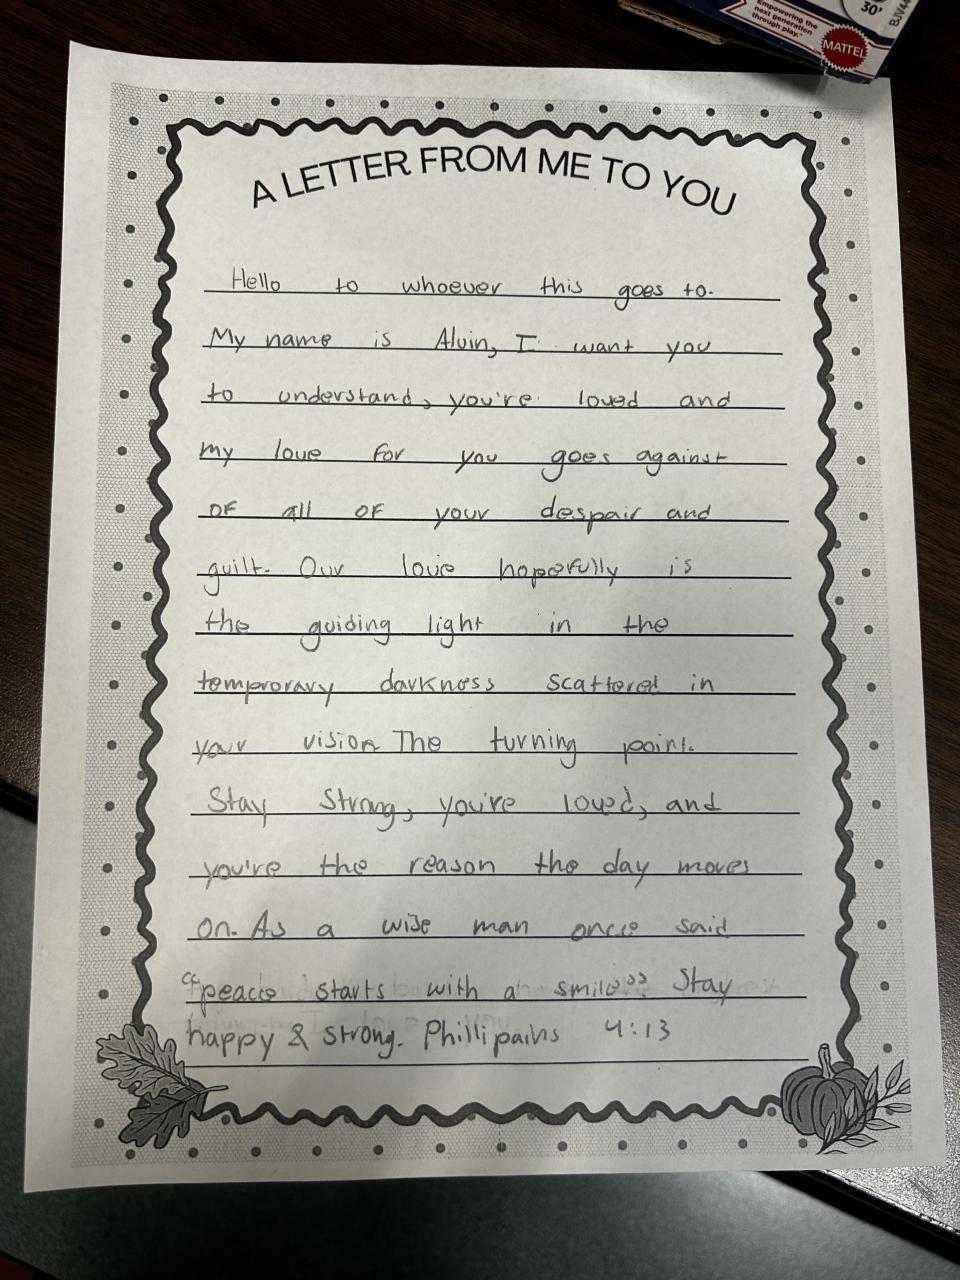 30'
BJV44
Empowering the
next generation
through play.™
MATTEL
A LETTER FROM ME TO YOU
Hello to whoever this goes to.
My name is Alvin, I want you
to understand, you're loved and
my love for you goes against
of all of your despair and
guilt. Our love hopefully is
the guiding light in the
temprorary darkness scattered in
your vision. The turning point.
Stay Strong, you're loved, and
you're the reason the day moves
on. As a wise man once said
"peace starts with a smile" Stay
happy & strong. Phillipains 4:13